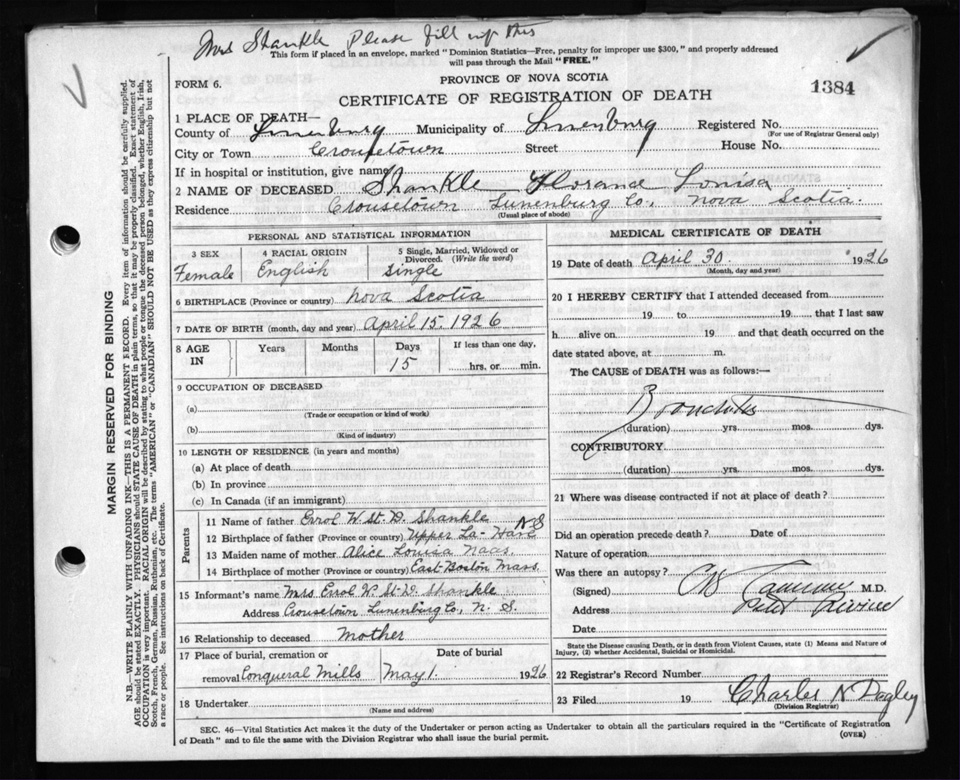 Mrs Shankle Please fill up this
This form if placed in an envelope, marked "Dominion Statistics—Free, penalty for improper use $300," and properly addressed
will pass through the Mail "FREE."
FORM 6.
PROVINCE OF NOVA SCOTIA
CERTIFICATE OF REGISTRATION OF DEATH
1384
1 PLACE OF DEATH—
County of Lunenburg Municipality of Lunenburg Registered No.
(For use of Registrar General only)
City or Town Crousetown Street House No.
If in hospital or institution, give name
2 NAME OF DECEASED Shankle Florance Louisa
Residence Crousetown Lunenburg Co., Nova Scotia.
(Usual place of abode)
PERSONAL AND STATISTICAL INFORMATION
3 SEX Female
4 RACIAL ORIGIN English
5 Single, Married, Widowed or Divorced. (Write the word) Single
6 BIRTHPLACE (Province or country) Nova Scotia
7 DATE OF BIRTH (month, day and year) April 15. 1926
8 AGE IN Years Months Days 15 If less than one day, hrs. or min.
9 OCCUPATION OF DECEASED
(a)
(Trade or occupation or kind of work)
(b)
(Kind of industry)
10 LENGTH OF RESIDENCE (in years and months)
(a) At place of death
(b) In province
(c) In Canada (if an immigrant)
Parents
11 Name of father Errol W. St. D. Shankle
12 Birthplace of father (Province or country) Upper La-Have N S
13 Maiden name of mother Alice Louisa Naas
14 Birthplace of mother (Province or country) East Boston Mass.
15 Informant's name Mrs Errol W. St. D. Shankle
Address Crousetown Lunenburg Co, N. S.
16 Relationship to deceased Mother
17 Place of burial, cremation or removal Conqueral Mills Date of burial May 1. 1926
18 Undertaker
(Name and address)
MEDICAL CERTIFICATE OF DEATH
19 Date of death April 30. 1926
(Month, day and year)
20 I HEREBY CERTIFY that I attended deceased from
19 to 19 that I last saw
h alive on 19 and that death occurred on the
date stated above, at m.
The CAUSE of DEATH was as follows:—
Bronchitis
(duration) yrs. mos. dys.
CONTRIBUTORY
(duration) yrs. mos. dys.
21 Where was disease contracted if not at place of death?
Did an operation precede death? Date of
Nature of operation
Was there an autopsy?
(Signed) M.D.
Address
Date
State the Disease causing Death, or in death from Violent Causes, state (1) Means and Nature of Injury, (2) whether Accidental, Suicidal or Homicidal.
22 Registrar's Record Number
23 Filed 19 Charles N Dagley
(Division Registrar)
SEC. 46—Vital Statistics Act makes it the duty of the Undertaker or person acting as Undertaker to obtain all the particulars required in the "Certificate of Registration
of Death" and to file the same with the Division Registrar who shall issue the burial permit.
(OVER)
MARGIN RESERVED FOR BINDING
N.B.—WRITE PLAINLY WITH UNFADING INK—THIS IS A PERMANENT RECORD. Every item of information should be carefully supplied.
AGE should be stated EXACTLY. PHYSICIANS should STATE CAUSE OF DEATH in plain terms, so that it may be properly classified. Exact statement of
OCCUPATION is very important. RACIAL ORIGIN will be described by stating to what people or tongue the deceased person belonged, whether English, Irish,
Scotch, French, German, Russian, Ruthenian, etc. The terms "AMERICAN" or "CANADIAN" SHOULD NOT BE USED as they express citizenship but not
a race or people. See instructions on back of Certificate.